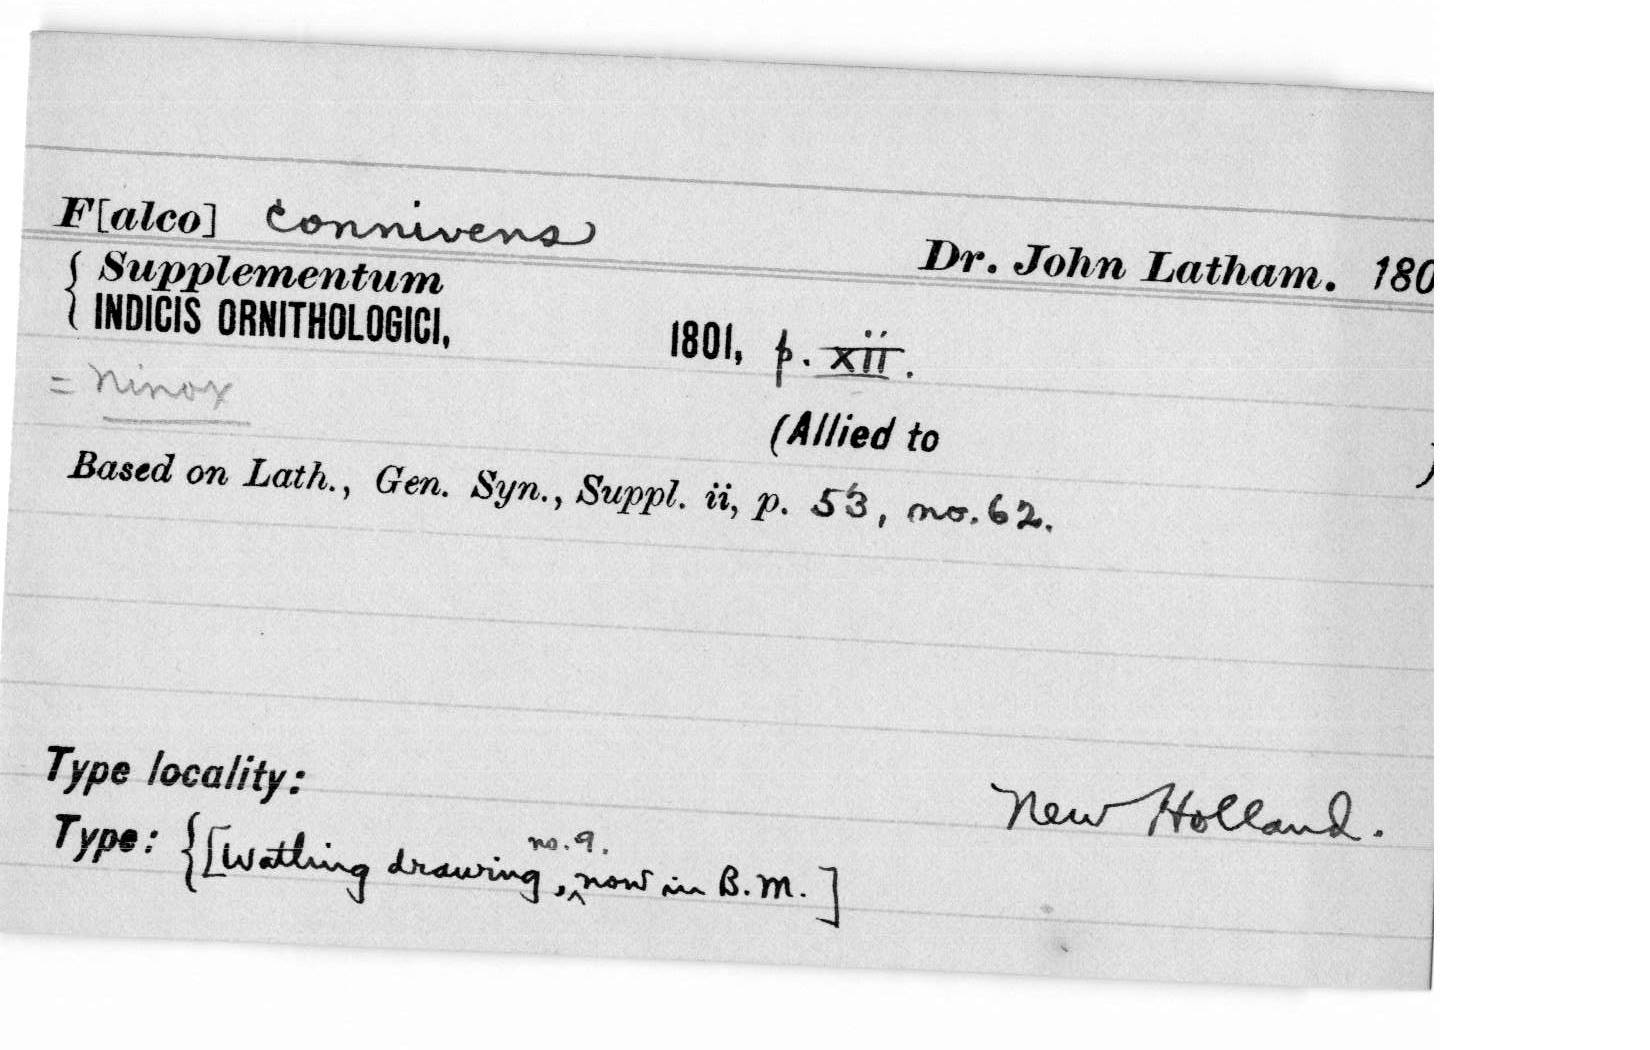 F[alco] connivens Dr. John Latham. 180
{ Supplementum
INDICIS ORNITHOLOGICI, 1801, p. xii.
= Ninox
(Allied to )
Based on Lath., Gen. Syn., Suppl. ii, p. 53, no. 62.
Type locality: New Holland.
Type: {[Watling drawing, no. 9. now in B.M.]